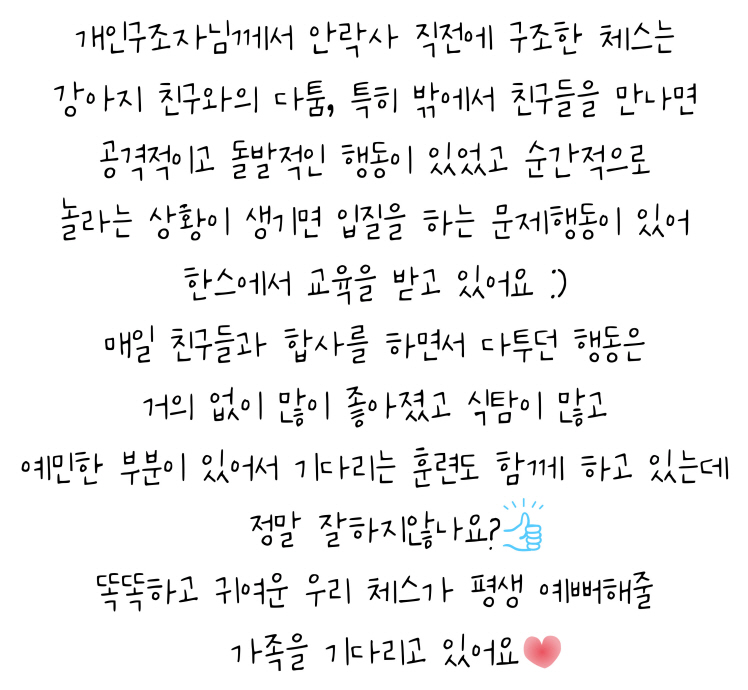 개인구조자님께서 안락사 직전에 구조한 체스는
강아지 친구와의 다툼, 특히 밖에서 친구들을 만나면
공격적이고 돌발적인 행동이 있었고 순간적으로
놀라는 상황이 생기면 입질을 하는 문제행동이 있어
한스에서 교육을 받고 있어요 :)
매일 친구들과 합사를 하면서 다투던 행동은
거의 없이 많이 좋아졌고 식탐이 많고
예민한 부분이 있어서 기다리는 훈련도 함께 하고 있는데
정말 잘하지않나요?👍
똑똑하고 귀여운 우리 체스가 평생 예뻐해줄
가족을 기다리고 있어요❤